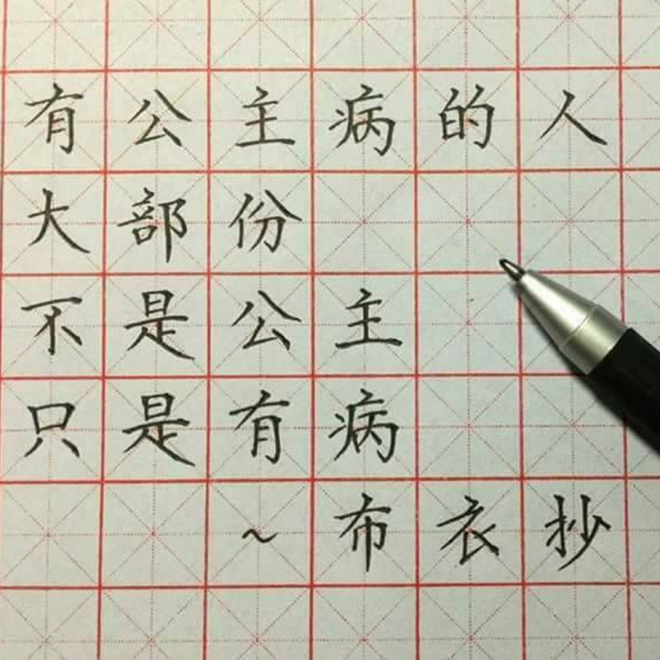 有公主病的人
大部份
不是公主
只是有病
~布衣抄